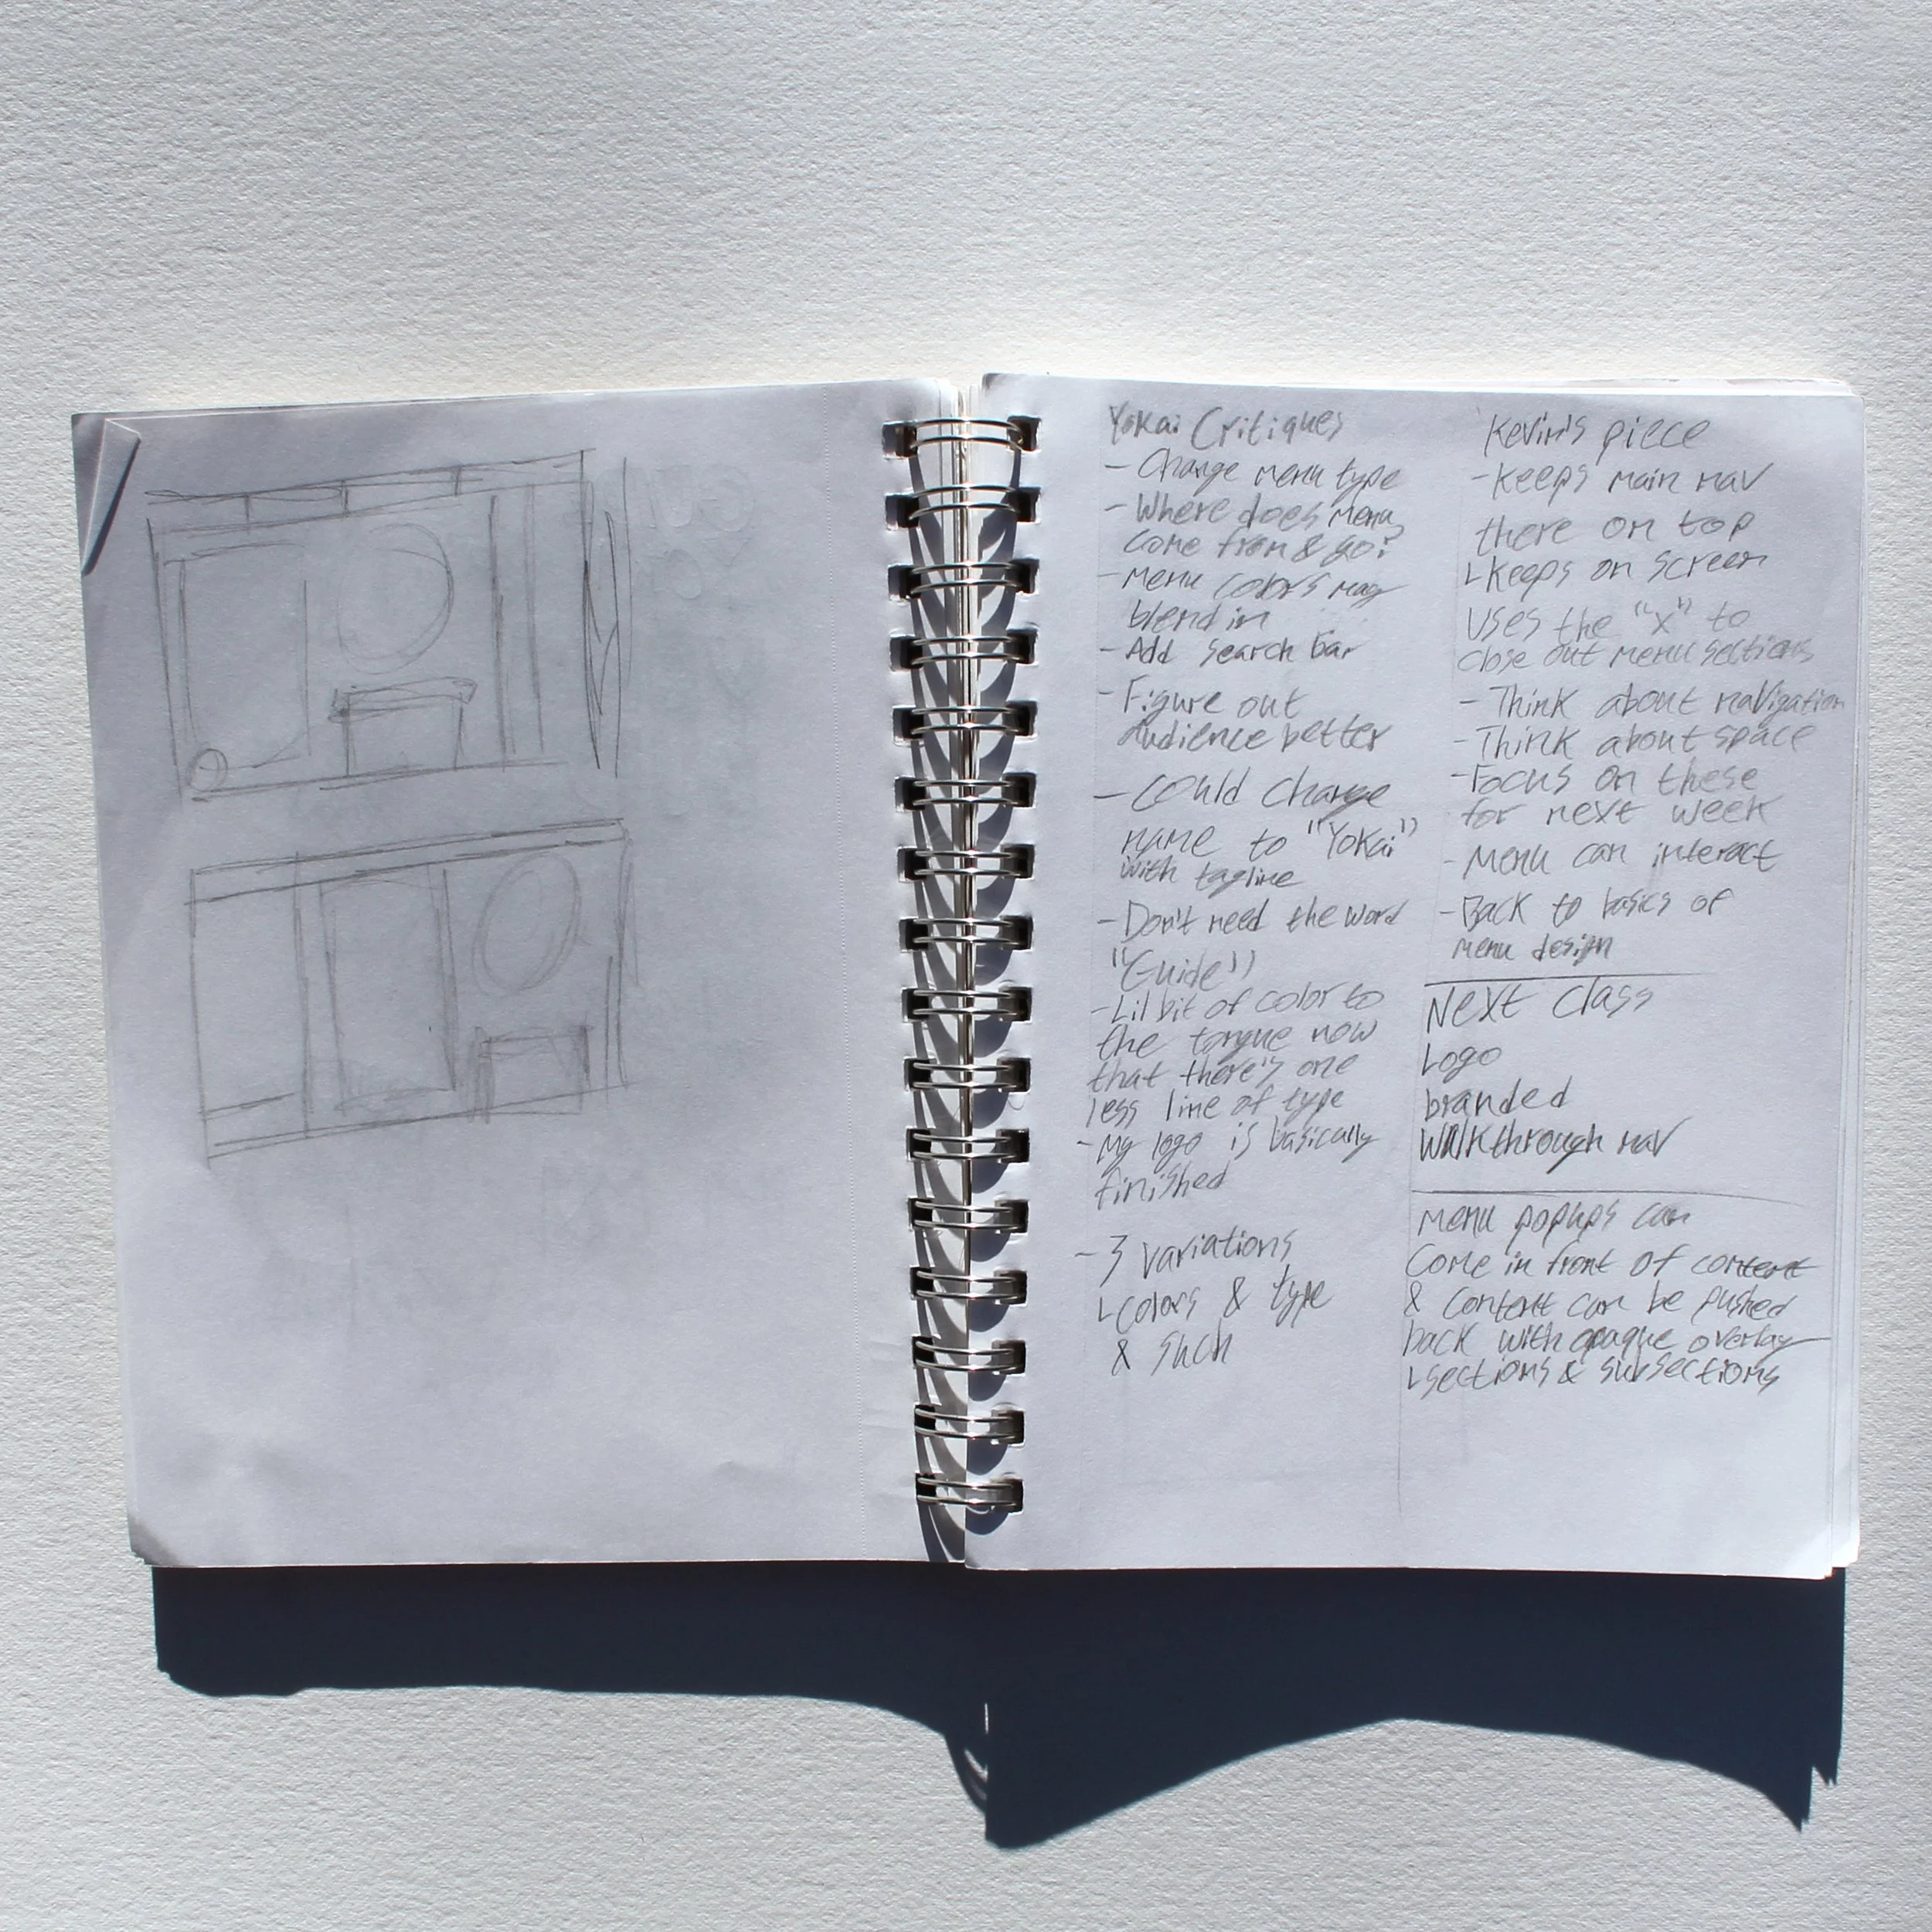 Yokai Critiques
- Change menu type
- Where does menu
come from & go?
- menu colors may
blend in
- Add search bar
- Figure out
audience better
- Could change
name to "Yokai"
with tagline
- Don't need the word
"Guide"
- Lil bit of color to
the tongue now
that there's one
less line of type
- My logo is basically
finished
- 3 variations
└ colors & type
& such
Kevin's piece
- Keeps main nav
there on top
└ keeps on screen
uses the "x" to
close out menu sections
- Think about navigation
- Think about space
- Focus on these
for next week
- Menu can interact
- Back to basics of
menu design
Next Class
Logo
branded
Walkthrough nav
menu popups can
Come in front of content
& content can be pushed
back with opaque overlay
└ sections & subsections